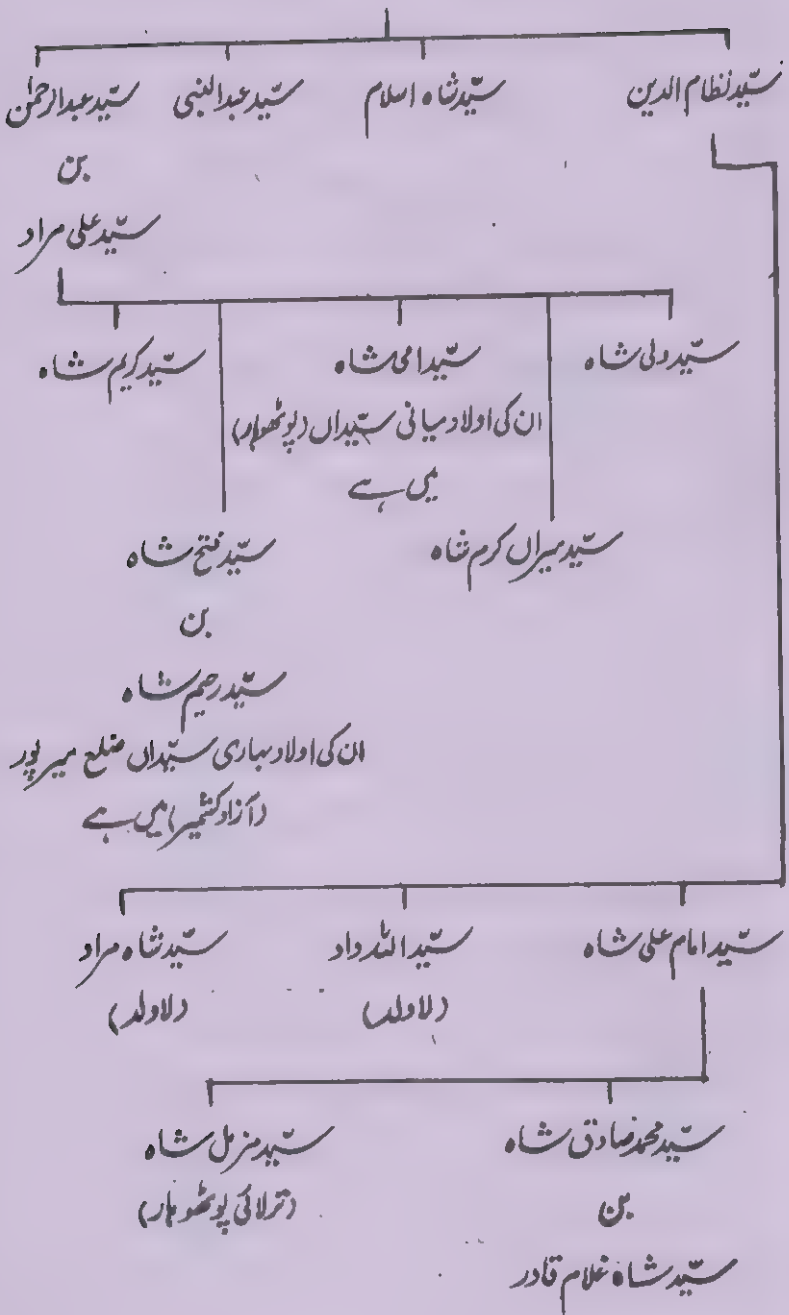 سیّد نظام الدین
سیّد شاہ اسلام
سیّد عبدالنبی
سیّد عبدالرحمٰن
بن
سیّد علی مراد
سیّد ولی شاہ
سیّد امی شاہ
ان کی اولاد میانی سیّداں (پوٹھوہار)
میں ہے
سیّد کریم شاہ
سیّد میراں کرم شاہ
سیّد فتح شاہ
بن
سیّد رحیم شاہ
ان کی اولاد بہاری سیّداں ضلع میرپور
(آزاد کشمیر) میں ہے
سیّد امام علی شاہ
سیّد اللہ داد
(لاولد)
سیّد شاہ مراد
(لاولد)
سیّد محمد صادق شاہ
بن
سیّد شاہ غلام قادر
سیّد مزمل شاہ
(ترلائی پوٹھوہار)